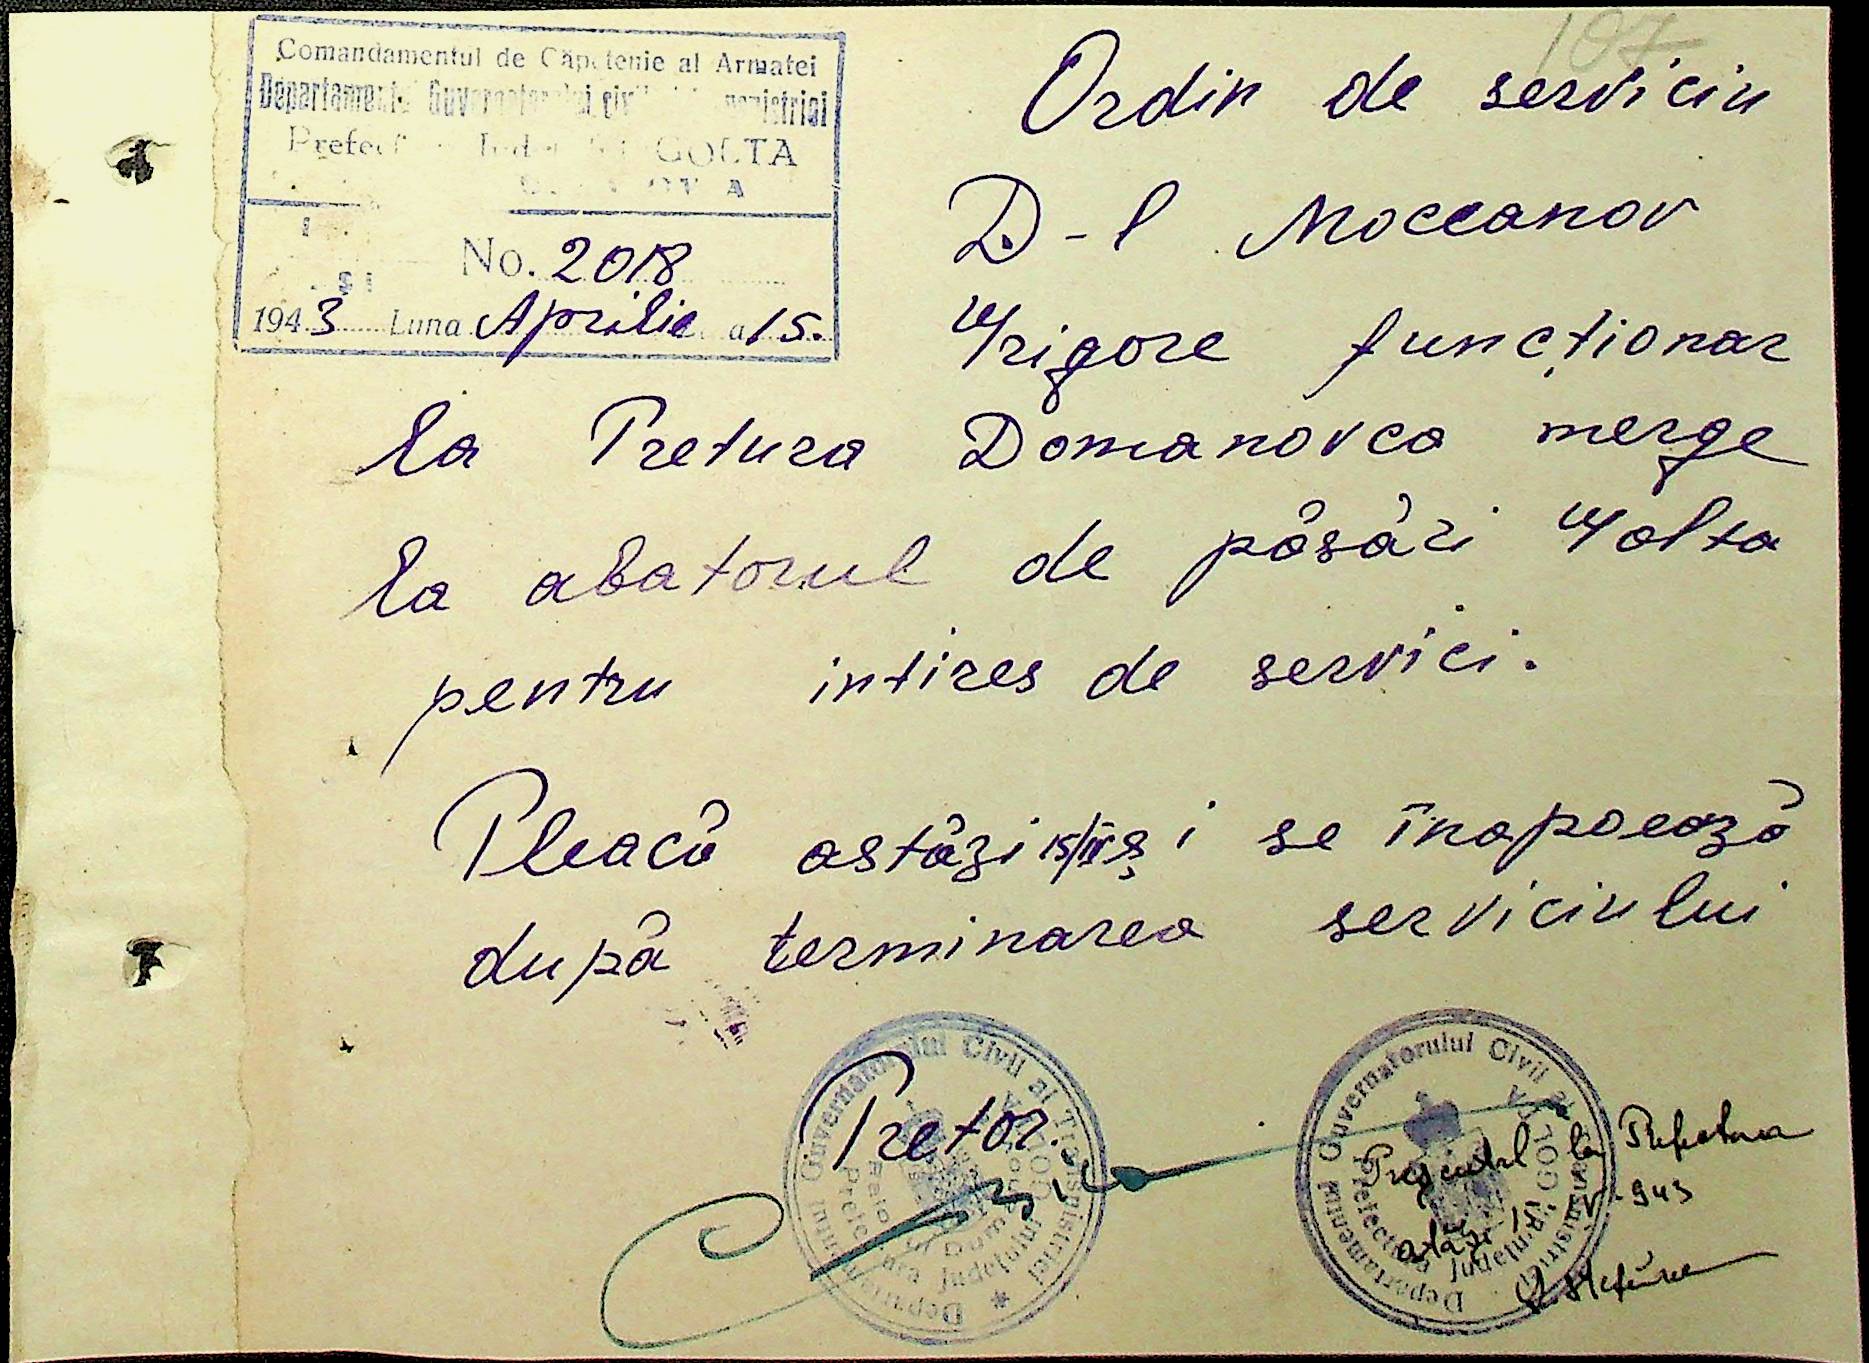 107
Comandamentul de Căpetenie al Armatei
Departamentul Guvernatorului civil Transnistriei
Prefectura Județului GOLTA
No. 2018
1943 Luna Aprilie a 15.
Ordin de serviciu
D-l Mocceanov
Grigore funcționar
la Pretura Domanovca merge
la abatorul de păsări Golta
pentru intires de servici.
Pleacă astăzi 15/IV și se înapoează
după terminarea serviciului
Pretor.
Departamentul Guvernatorului Civil al Transnistriei
Prefectura Județului GOLTA
Departamentul Guvernatorului Civil al Transnistriei
Prefectura Județului GOLTA
Prezentat la Prefectura
astăzi 15 IV-943